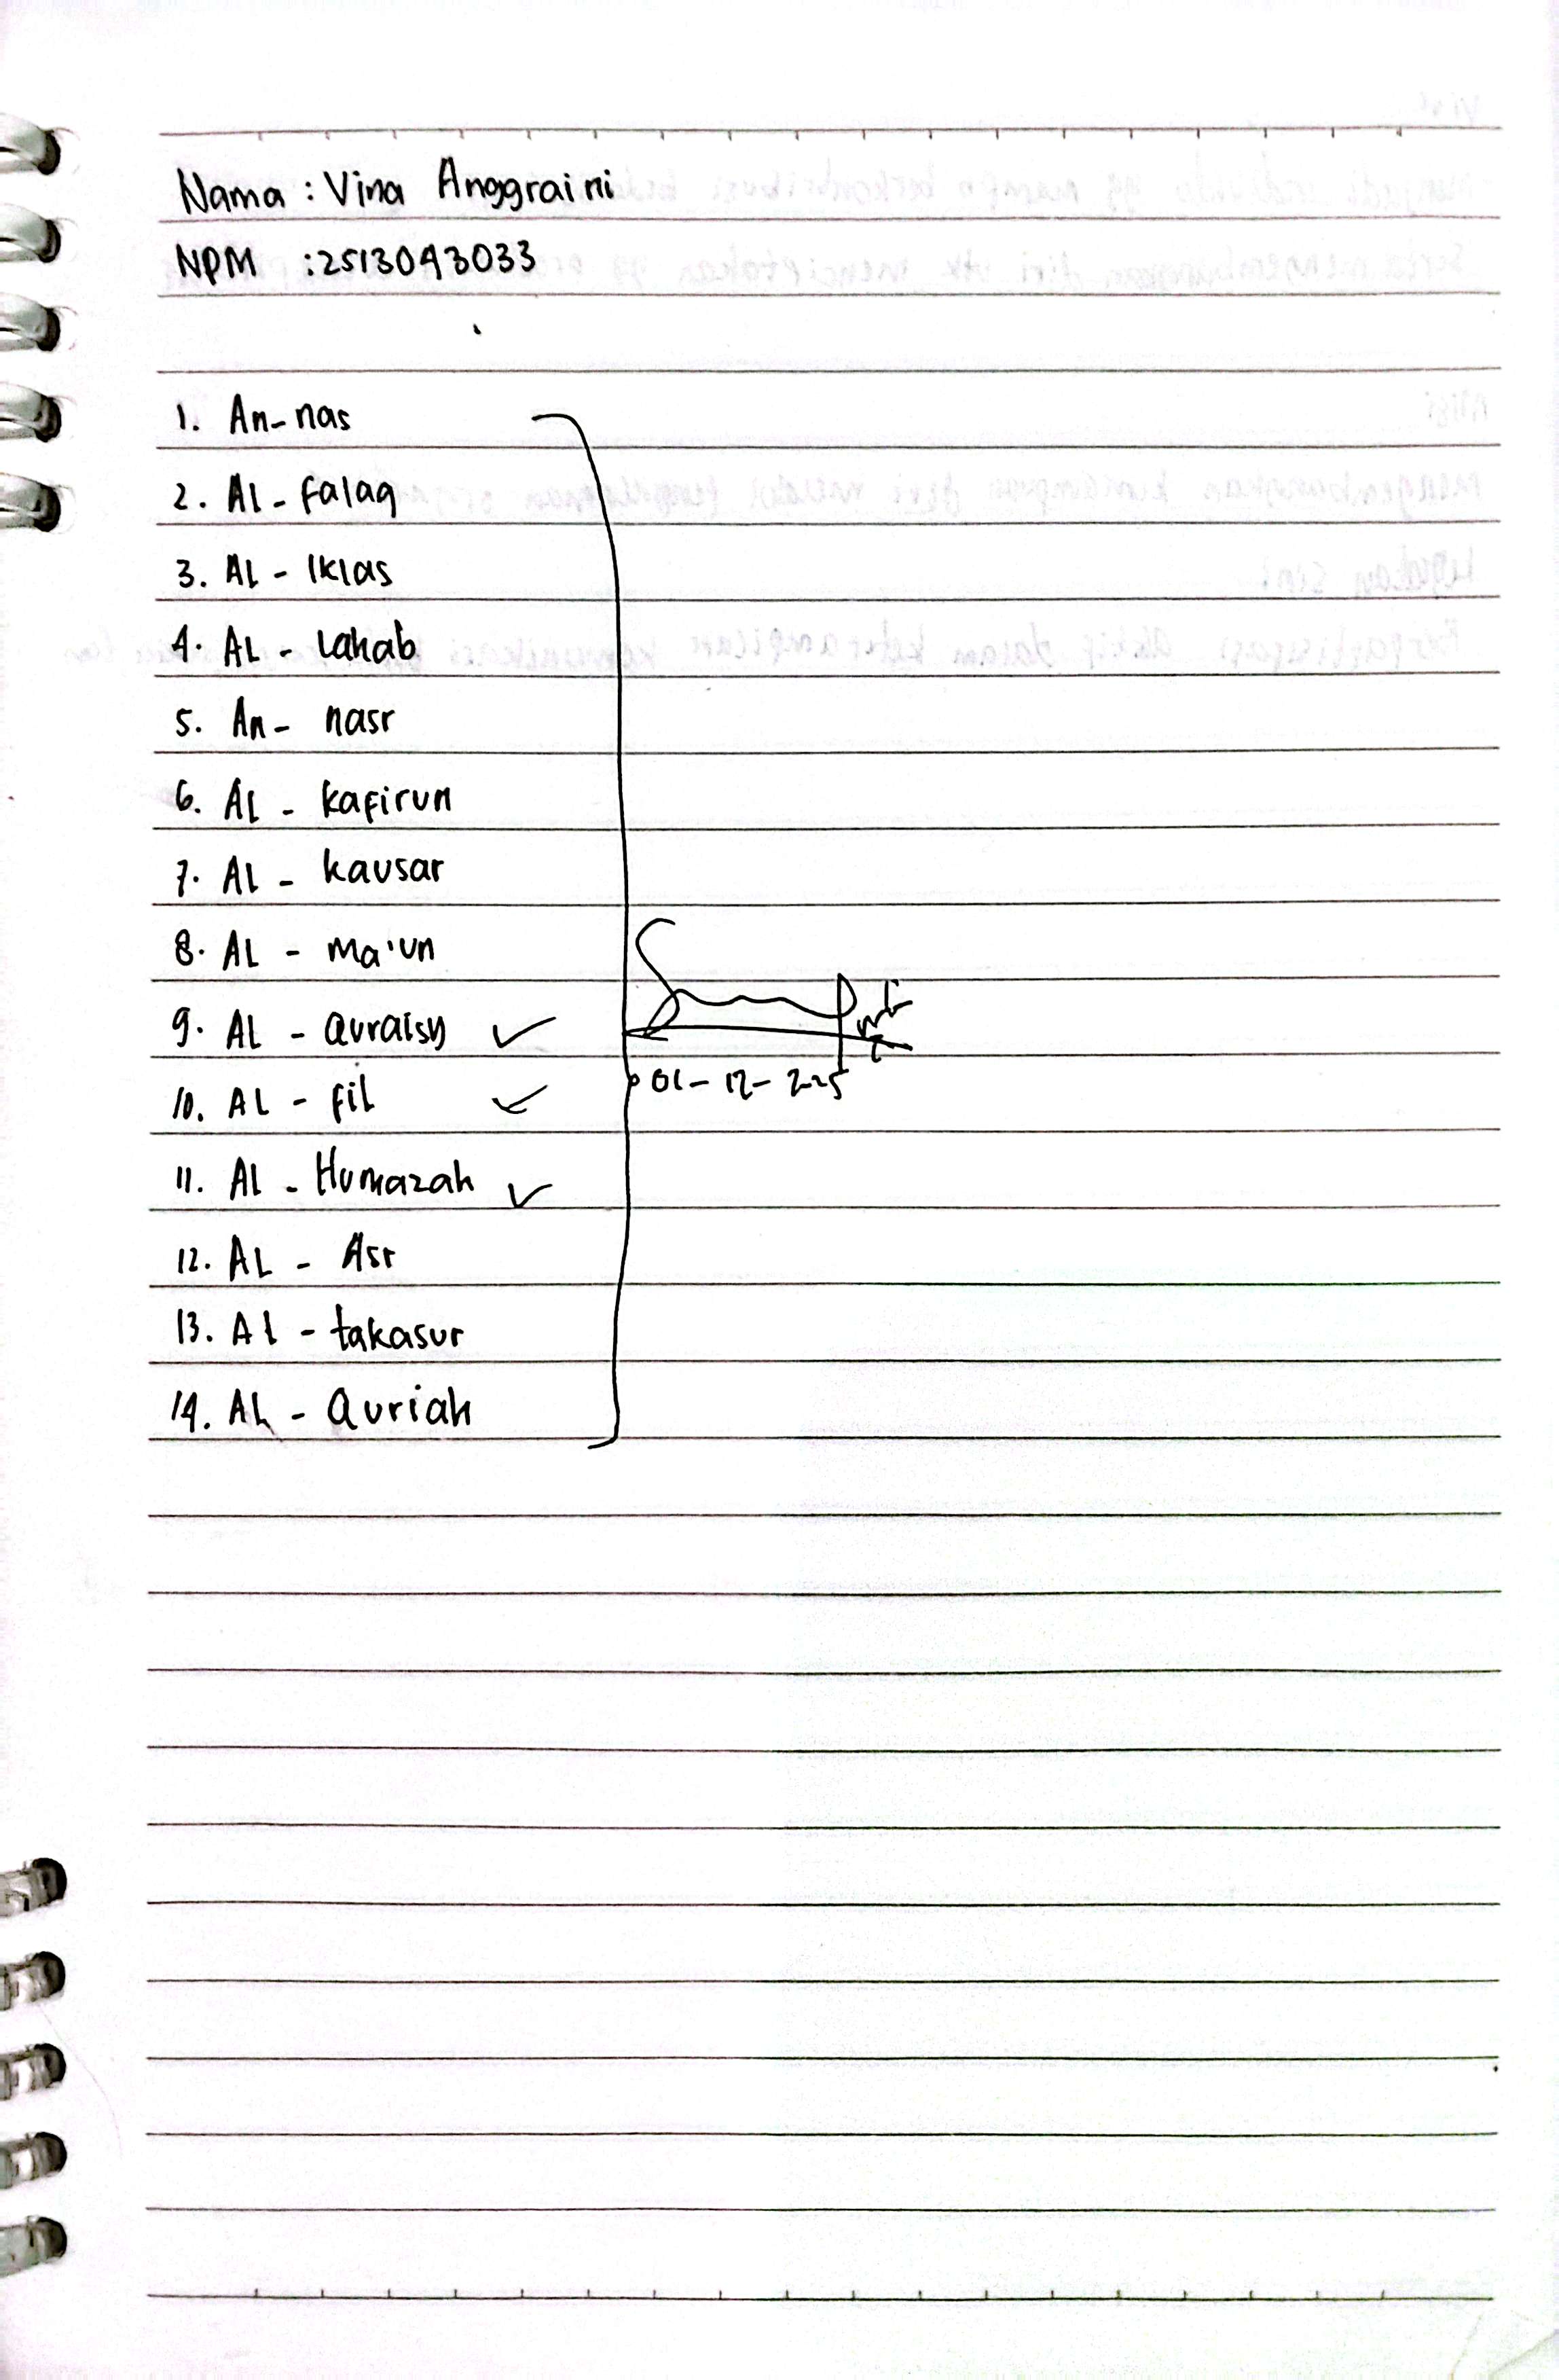 Nama : Vina Anggraini
NPM : 2513043033
1. An-nas
2. Al - falaq
3. AL - Iklas
4. AL - Lahab
5. An - nasr
6. AL - kafirun
7. AL - kausar
8. AL - ma'un
9. AL - Quraisy ✓
10. AL - fil ✓
11. AL - Humazah ✓
12. AL - Asr
13. Al - takasur
14. AL - Quriah
01-12-2025